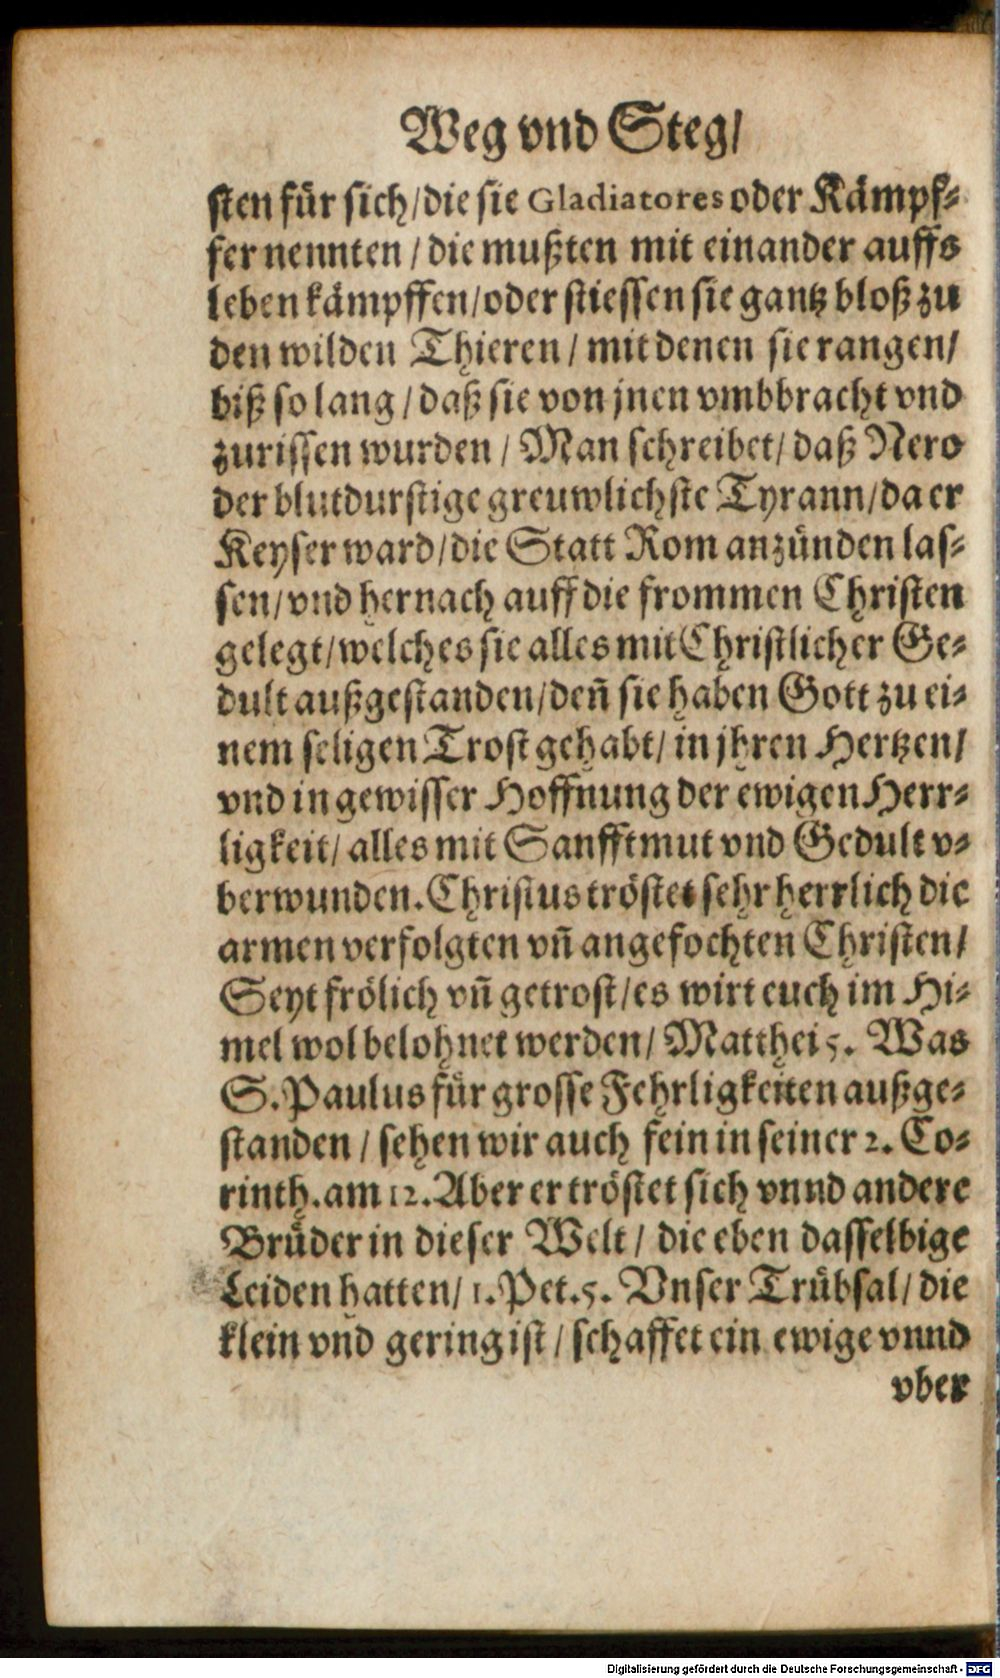 Weg vnd Steg/
sten für sich/die sie Gladiatores oder Kämpf-
fer nennten / die mußten mit einander auffs
leben kämpffen/oder stiessen sie gantz bloß zu
den wilden Thieren / mit denen sie rangen/
biß so lang / daß sie von jnen vmbbracht vnd
zurissen wurden / Man schreibet/ daß Nero
der blutdurstige greuwlichste Tyrann/da er
Keyser ward/die Statt Rom anzünden las-
sen/vnd hernach auff die frommen Christen
gelegt/welches sie alles mit Christlicher Ge-
dult außgestanden/deñ sie haben Gott zu ei-
nem seligen Trost gehabt/ in jhren Hertzen/
vnd in gewisser Hoffnung der ewigen Herr-
ligkeit/ alles mit Sanfftmut vnd Gedult v-
berwunden. Christus tröstet sehr herrlich die
armen verfolgten vñ angefochten Christen/
Seyt frölich vñ getrost/es wirt euch im Hi-
mel wol belohnet werden/ Matthei 5. Was
S. Paulus für grosse Fehrligkeiten außge-
standen / sehen wir auch fein in seiner 2. Co-
rinth. am 12. Aber er tröstet sich vnnd andere
Brüder in dieser Welt / die eben dasselbige
Leiden hatten/ 1. Pet. 5. Vnser Trübsal/ die
klein vnd gering ist / schaffet ein ewige vnnd
vber
Digitalisierung gefördert durch die Deutsche Forschungsgemeinschaft - DFG